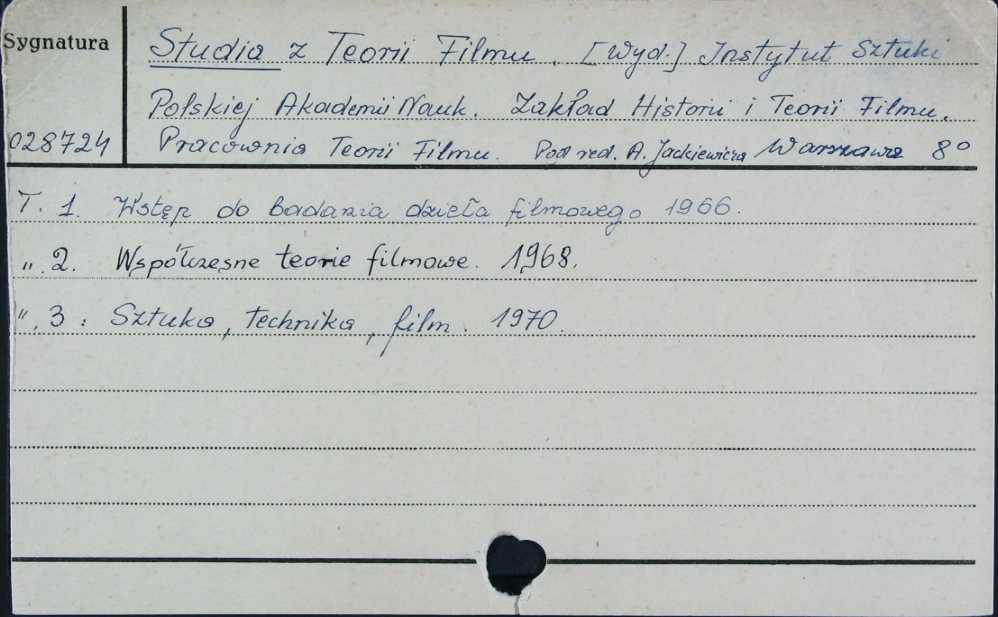 Sygnatura
Studia z Teorii Filmu. [Wyd.] Instytut Sztuki
Polskiej Akademii Nauk. Zakład Historii i Teorii Filmu.
028724 Pracownia Teorii Filmu. Pod red. A. Jackiewicza Warszawa 8°
T. 1. Wstęp do badania dzieła filmowego 1966.
„ 2. Współczesne teorie filmowe. 1968.
„ 3: Sztuka, technika, film. 1970.